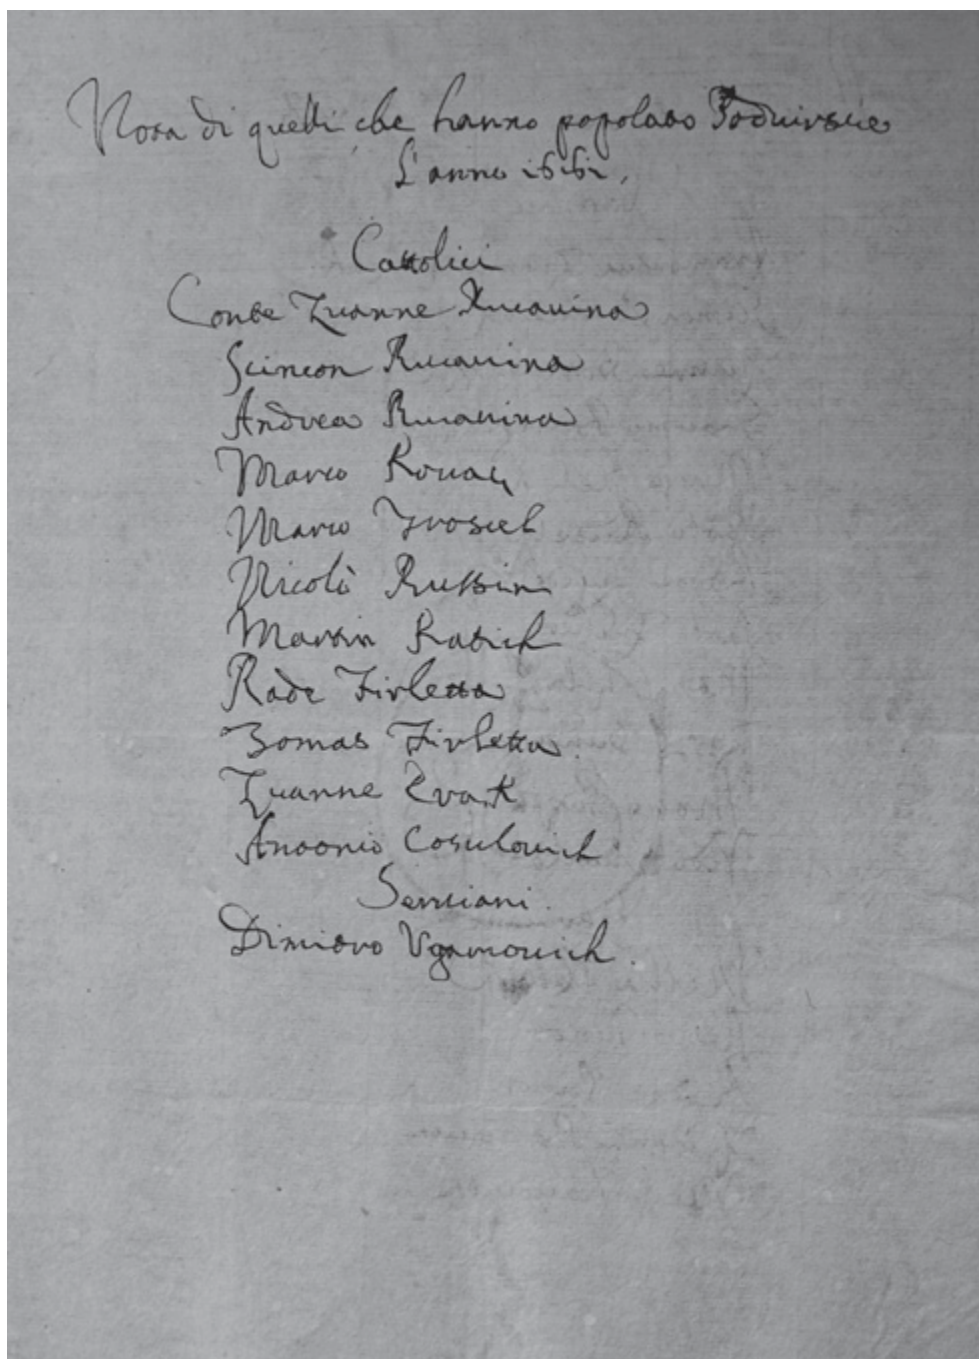 Nota di quelli che hanno popolato
L'anno 1661.
Cattolici
Conte Zuanne Rucavina
Scimon Rucavina
Andrea Rucavina
Marco Kouaç
Marco
Nicolò Russin
Martin Ratich
Rade Firletta
Tomas Firletta
Zuanne
Antonio Cosulovich
Seruiani.
Dimitro